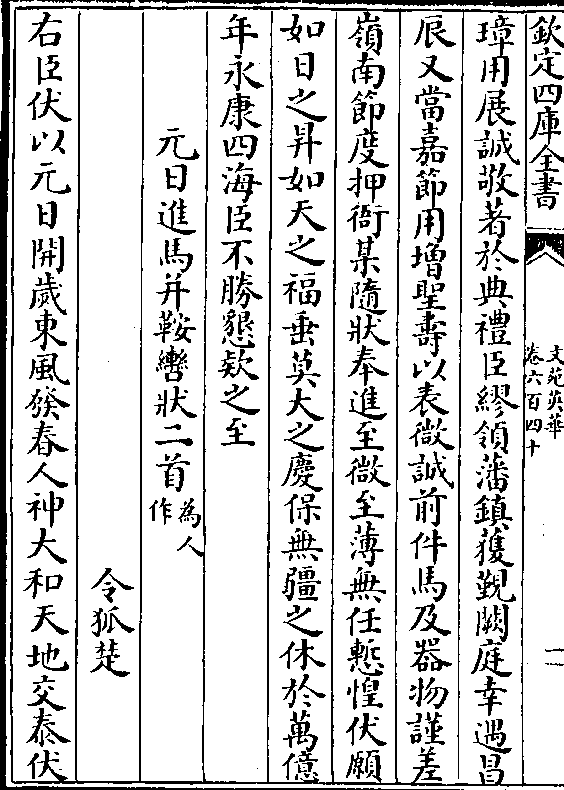 欽定四庫全書
文苑英華
卷六百四十
二
璋用展誠敬著於典禮臣繆領藩鎮獲覲闕庭幸遇昌
辰又當嘉節用增聖壽以表微誠前件馬及器物謹差
嶺南節度押衙某隨狀奉進至微至薄無任慙惶伏願
如日之昇如天之福垂莫大之慶保無疆之休於萬億
年永康四海臣不勝懇欵之至
元日進馬并鞍轡狀二首
為人
作
令狐楚
右臣伏以元日開歲東風發春人神大和天地交泰伏